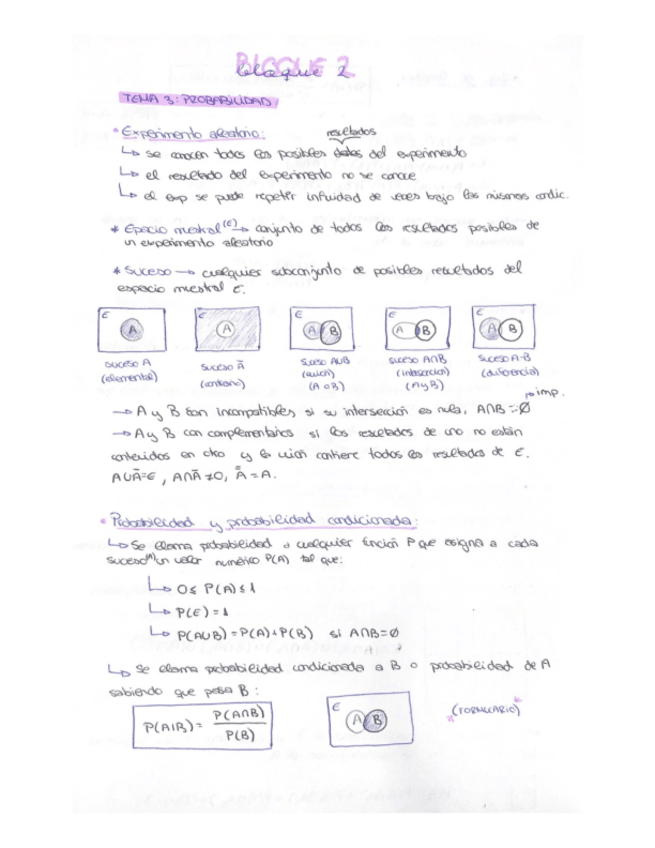 BLOQUE 2
bloque 2
TEMA 3: PROBABILIDAD
• Experimento aleatorio: resultados
↳ se conocen todos los posibles datos del experimento
↳ el resultado del experimento no se conoce
↳ el exp se puede repetir infinidad de veces bajo las mismas condic.
* Epacio mestral (E) → conjunto de todos los resultados posibles de
un experimento aleatorio
* Suceso → cualquier subconjunto de posibles resultados del
espacio muestral E.
E A
E A
E A B
E A B
E A B
suceso A
(elemental)
suceso Ā
(contrario)
suceso AUB
(unión)
(A o B)
suceso A∩B
(intersección)
(A y B)
suceso A-B
(diferencia)
→ imp.
→ A y B son incompatibles si su intersección es nula, A∩B = ∅
→ A y B son complementarios si los resultados de uno no están
contenidos en otro y la unión contiene todos los resultados de E.
AUĀ=E, A∩Ā≠0, Ā̄ = A.
• Probabilidad y probabilidad condicionada:
↳ Se llama probabilidad a cualquier función P que asigna a cada
suceso (A) un valor numérico P(A) tal que:
↳ 0 ≤ P(A) ≤ 1
↳ P(E) = 1
↳ P(AUB) = P(A) + P(B) si A∩B=∅
↳ Se llama probabilidad condicionada a B o probabilidad de A
sabiendo que pasa B:
P(A|B) = P(A∩B) / P(B)
E A B
(FORMULARIO)